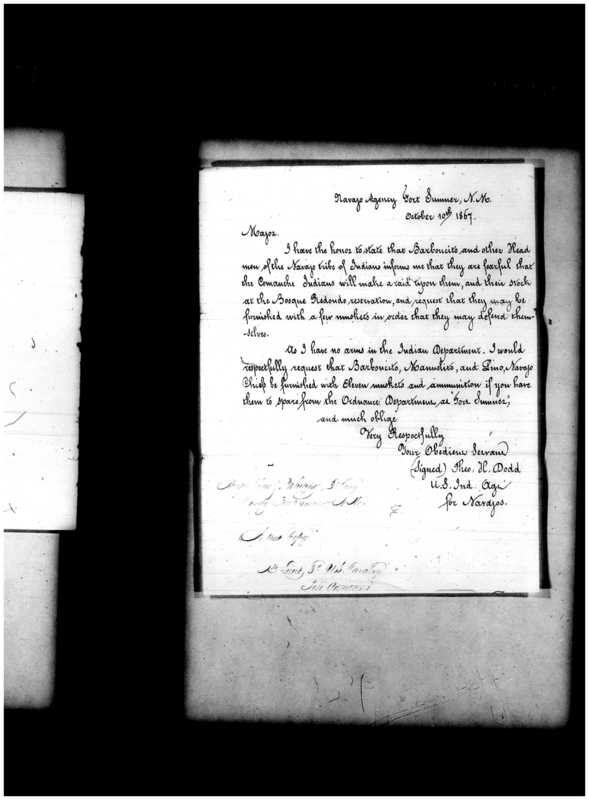 Navajo Agency Fort Sumner, N.M.
October 10th 1867.
Major.
I have the honor to state that Barboncito, and other Head
men of the Navajo tribe of Indians informs me that they are fearful that
the Comanche Indians will make a raid upon them, and their stock
at the Bosque Redondo, reservation, and request that they may be
furnished with a few muskets in order that they may defend them-
-selves.
As I have no arms in the Indian Department. I would
respectfully request that Barboncito, Manuelito, and Pino, Navajo
Chiefs be furnished with Eleven muskets and ammunition if you have
them to spare, from the Ordnance Department, at "Fort Sumner,"
and much oblige
Very Respectfully
Your Obedient Servant
(Signed) Theo. H. Dodd
U.S. Ind. Agt
for Navajos.
A true copy